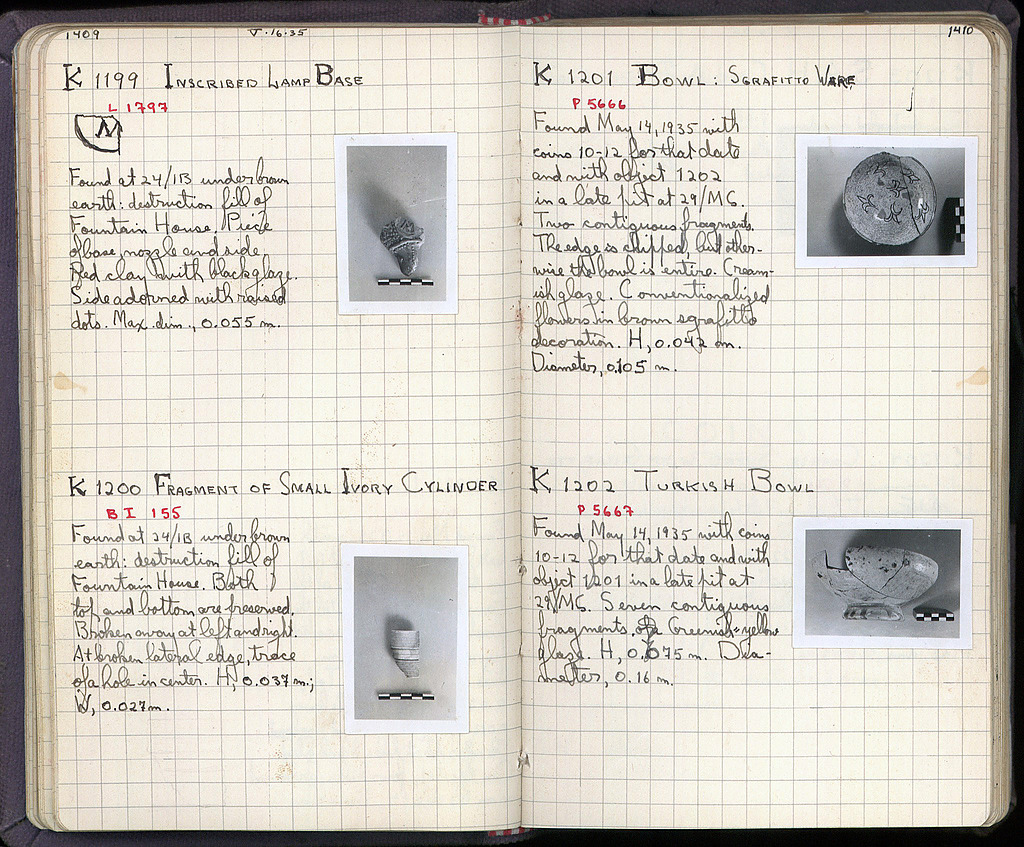 1409
V·16·35
K 1199 INSCRIBED LAMP BASE
L 1797
Found at 24/ΙΒ under brown
earth: destruction fill of
Fountain House. Piece
of base, nozzle and side.
Red clay with black glaze.
Side adorned with raised
dots. Max. dim., 0.055 m.
K 1200 FRAGMENT OF SMALL IVORY CYLINDER
BI 155
Found at 24/ΙΒ under brown
earth: destruction fill of
Fountain House. Both
top and bottom are preserved.
Broken away at left and right.
At broken lateral edge, trace
of a hole in center. H, 0.037 m.;
W, 0.027 m.
1410
K 1201 BOWL: SGRAFITTO WARE
P 5666
Found May 14, 1935 with
coins 10-12 for that date
and with object 1202
in a late pit at 29/ΜΣ.
Two contiguous fragments.
The edge is chipped, but other-
wise the bowl is entire. Cream-
ish glaze. Conventionalized
flowers in brown sgrafitto
decoration. H, 0.042 m.
Diameter, 0.105 m.
K 1202 TURKISH BOWL
P 5667
Found May 14, 1935 with coins
10-12 for that date and with
object 1201 in a late pit at
29/ΜΣ. Seven contiguous
fragments. Greenish-yellow
glaze. H, 0.075 m. Dia-
meter, 0.16 m.